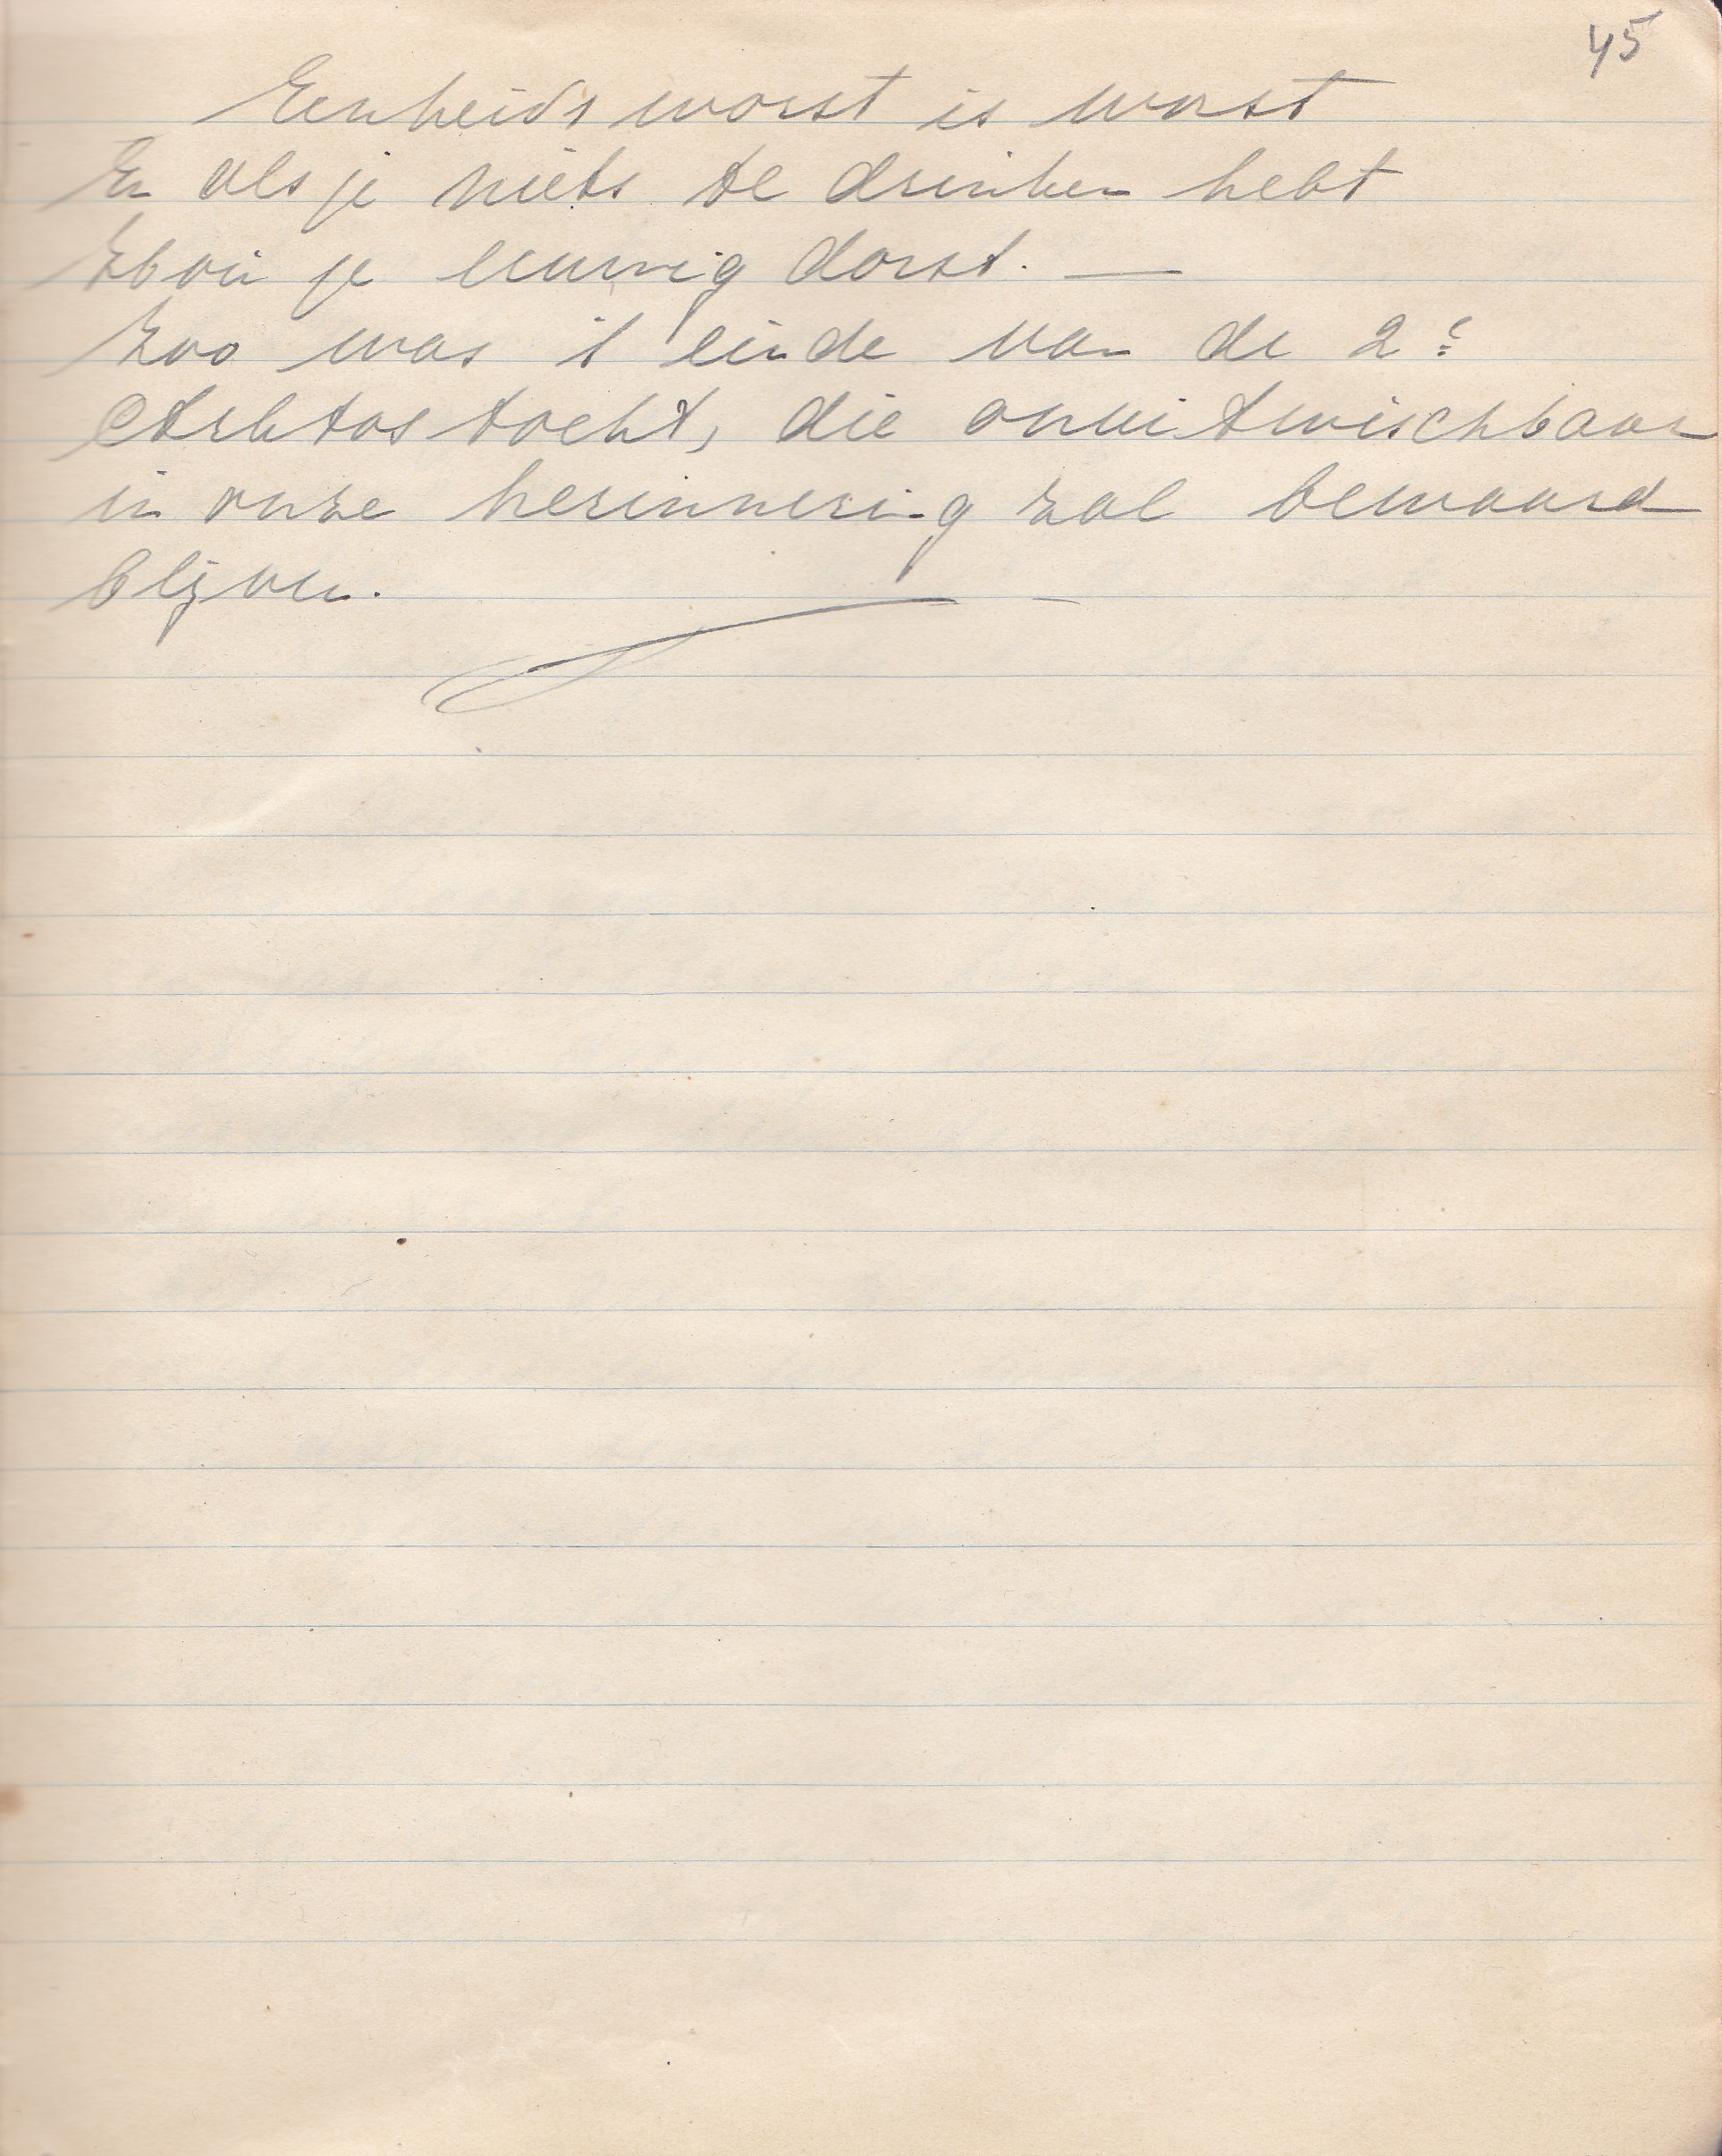 45
Eenheidsworst is worst
En als je niets te drinken hebt
Heb je eeuwig dorst. —
Zoo was 't einde van de 2e
tocht, die onuitwischbaar
in onze herinnering zal bewaard
blijven.